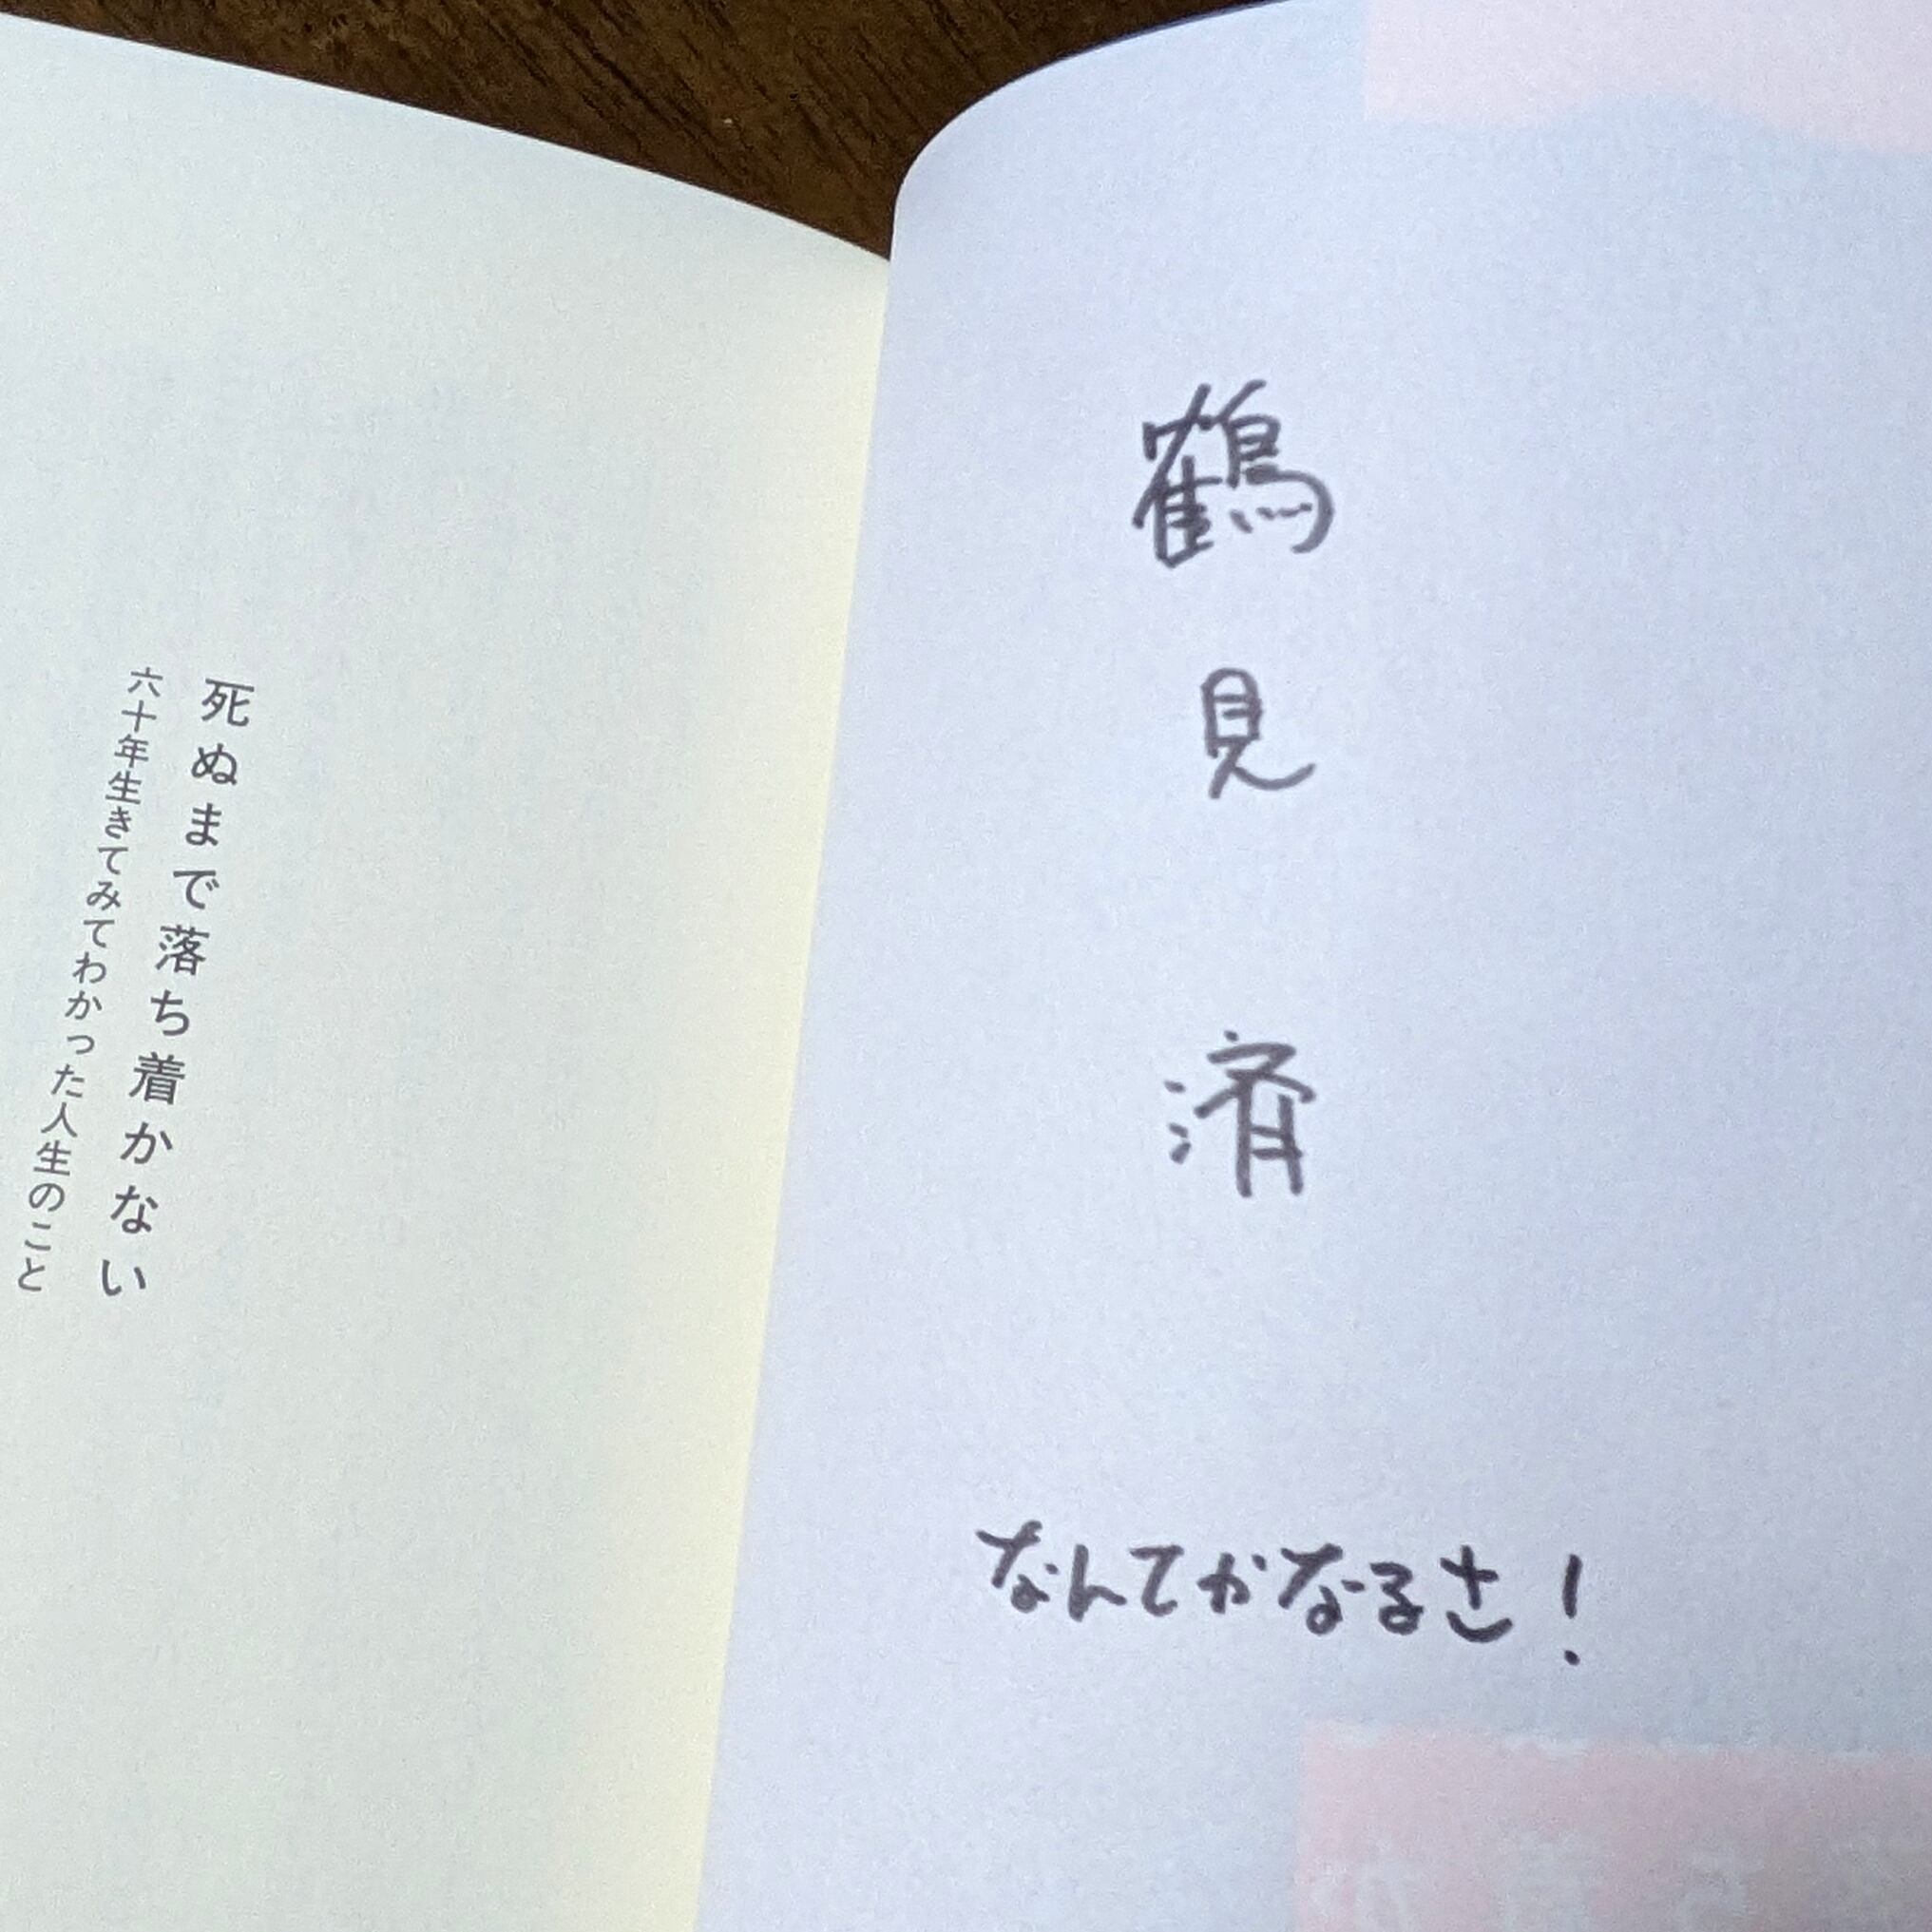 鶴見 済
なんてかなるさ!
死ぬまで落ち着かない
六十年生きてみてわかった人生のこと